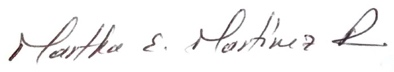 Martha E. Martinez R